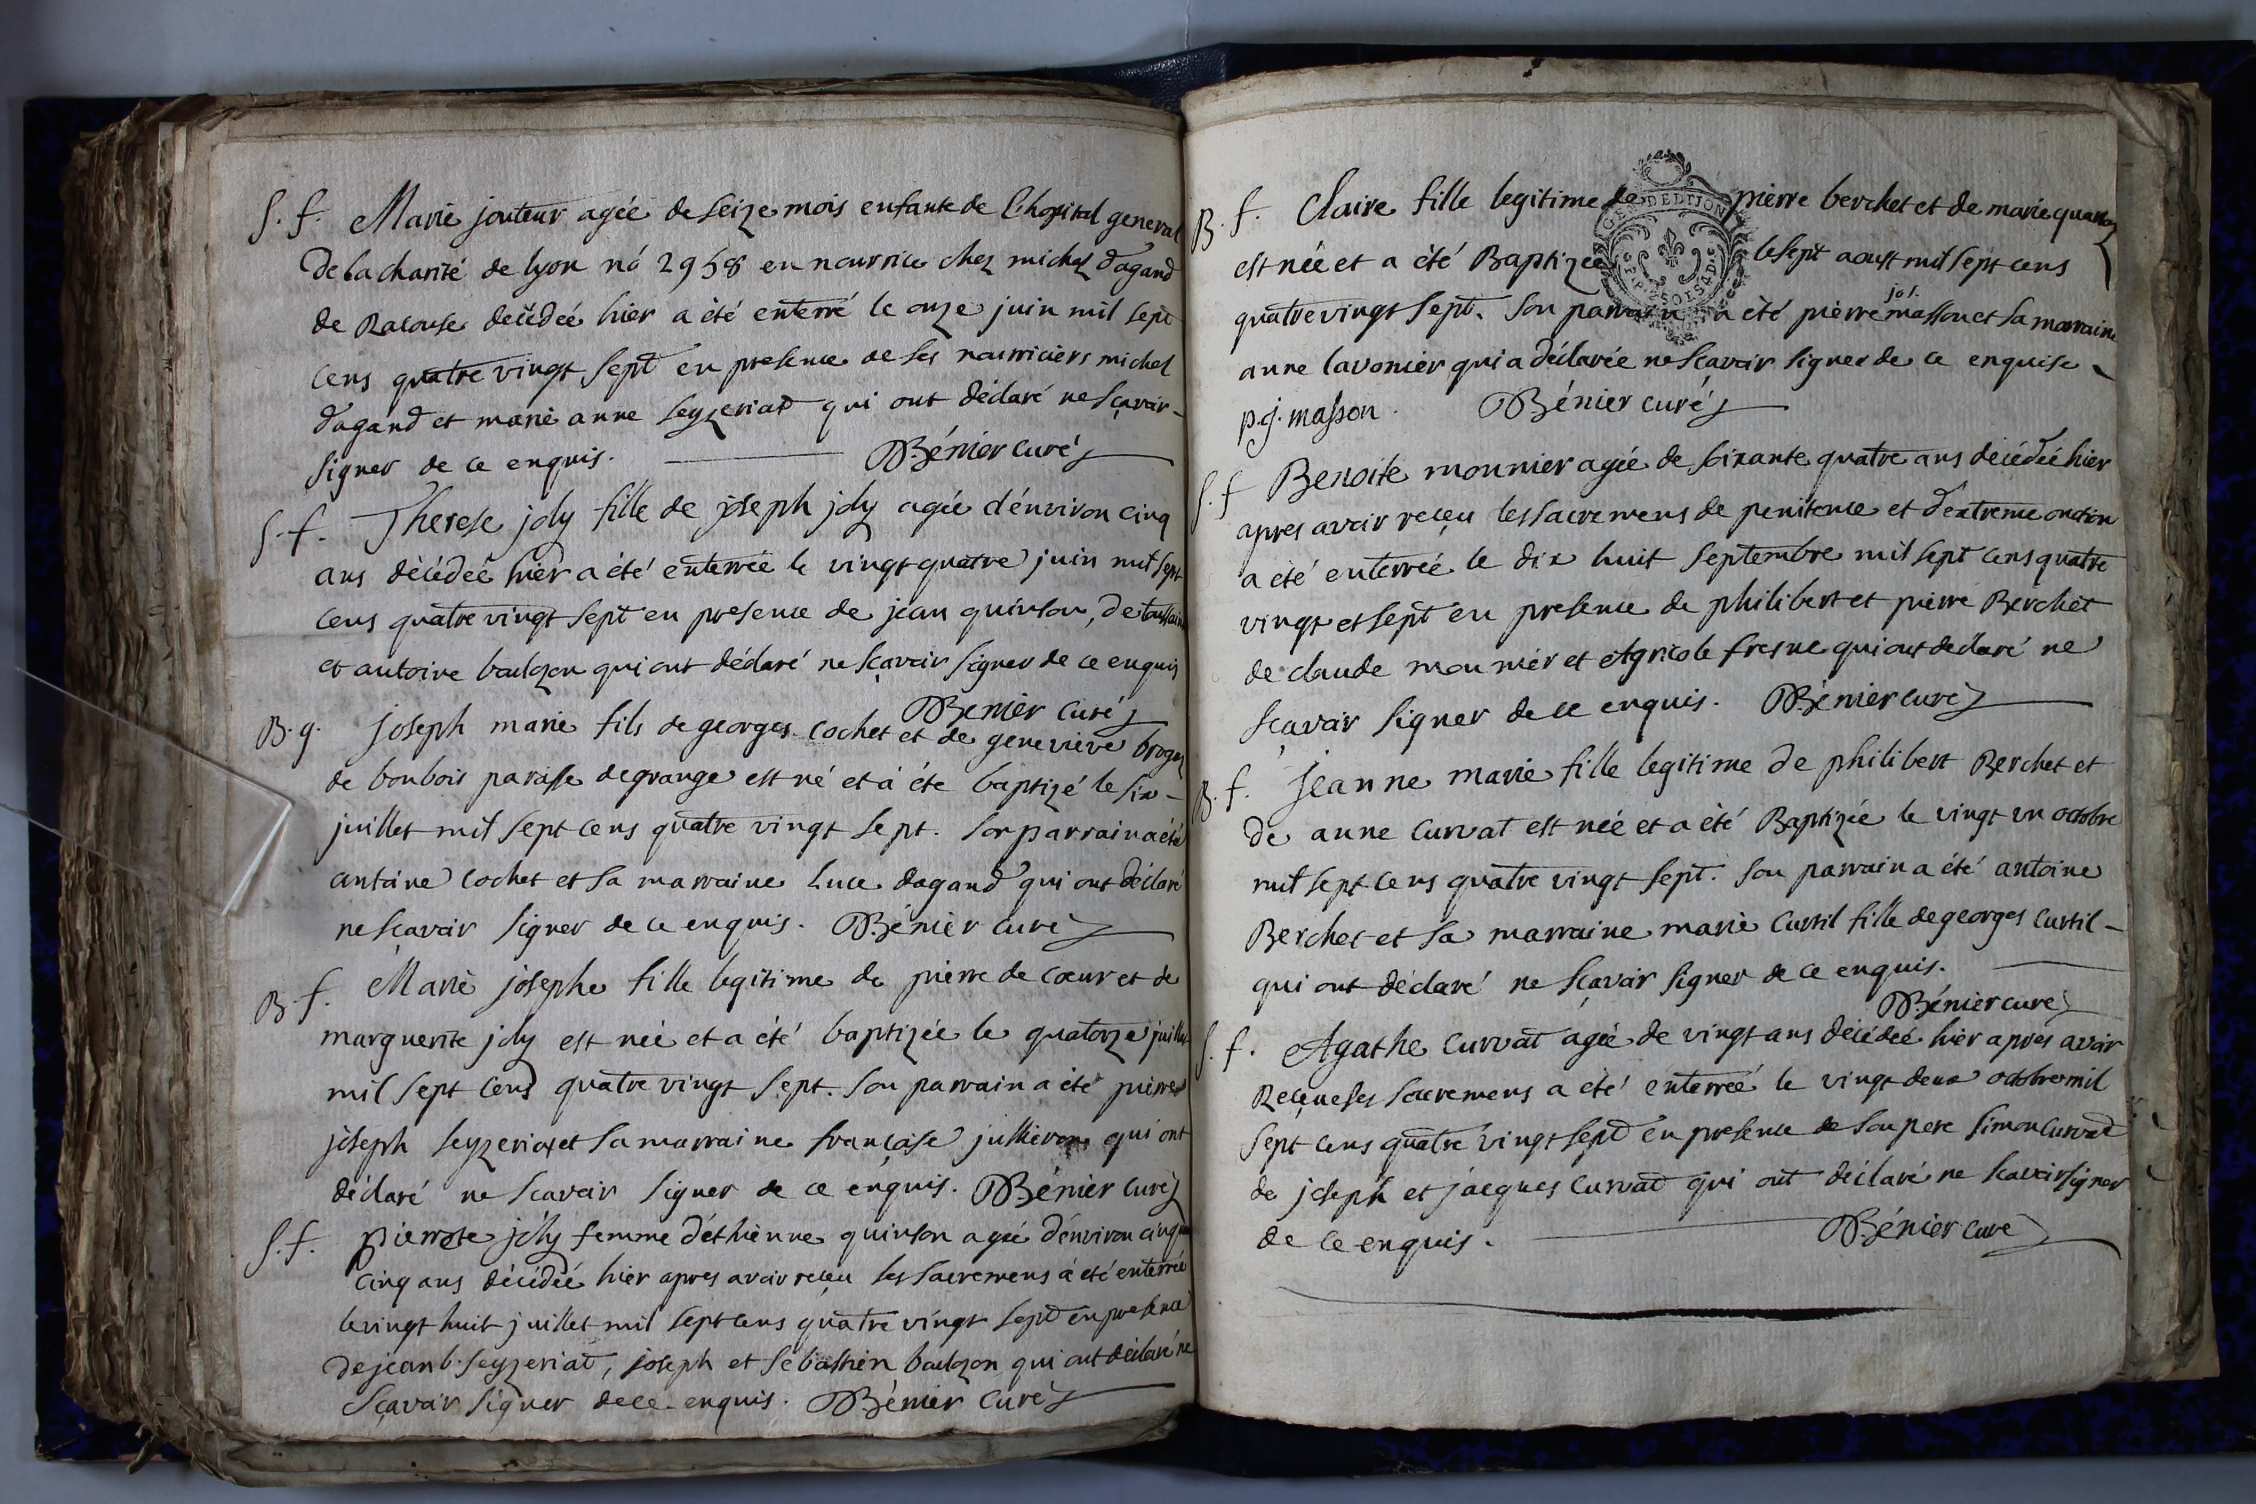 S. f. Marie jouteur agée de seize mois enfante de l'hopital general
de la charité de lyon nó 2958 en nourrice chez michel dagand
de Racouse decédeé hier a été enterré le onze juin mil sept
cens quatre vingt sept en presence de ses nourriciers michel
dagand et marie anne seyzeriat qui ont déclaré ne sçavoir
signer de ce enquis. Bénier curé
S. f. Therese joly fille de joseph joly agée d'environ cinq
ans décédeé hier a été enterrée le vingt quatre juin mil sept
cens quatre vingt sept en presence de jean quinson, de toussaint
et antoine boulozon qui ont déclaré ne sçavoir signer de ce enquis
Bénier curé
B. g. joseph marie fils de georges cochet et de genevieve
de bonbois paroisse de grange est né et à éte baptizé le six
juillet mil sept cens quatre vingt sept. son parrain a été
antoine cochet et sa marraine Luce dagand qui ont déclaré
ne sçavoir signer de ce enquis. Bénier curé
B. f. Marie josephe fille legitime de pierre de coeur et de
marguerite joly est née et a été baptizée le quatorze juillet
mil sept cens quatre vingt sept. son parrain a été pierre
joseph seyzeriat et sa marraine françoise qui ont
déclaré ne scavoir signer de ce enquis. Bénier curé
S. f. pierrote jòly femme d'éthienne quinson agée d'environ
cinq ans décédeé hier apres avoir reçeu les sacremens à été enterrée
le vingt huit juillet mil sept cens quatre vingt sept en presence
de jean b. seyzeriat, joseph et sebastien boulozon qui ont déclaré ne
sçavoir signer de ce enquis. Bénier curé
B. f. Claire fille legitime de pierre berchet et de marie
est née et a été Baptizée le sept aoust mil sept cens
quatre vingt sept. son parrain a été pierre jos. masson et sa marraine
anne lavonier qui a déclarée ne scavoir signer de ce enquise
p. j. masson. Bénier curé
S. f Benoite monnier agée de soixante quatre ans décédeé hier
apres avoir reçeu les sacremens de penitence et d'extreme onction
a été enterrée le dix huit septembre mil sept cens quatre
vingt et sept en presence de philibert et pierre Berchet
de claude monnier et Agricole fresne qui ont declaré ne
sçavoir signer de ce enquis. Bénier curé
B. f. Jeanne marie fille legitime de philibert Berchet et
de anne Curvat est née et a été Baptizée le vingt un octobre
mil sept cens quatre vingt sept. son parrain a été antoine
Berchet et sa marraine marie Curtil fille de georges Curtil
qui ont déclaré ne sçavoir signer de ce enquis.
Bénier curé
S. f. Agathe Curvat agée de vingt ans décédeé hier apres avoir
Reçeu ses sacremens a été enterreé le vingt deux octobre mil
sept cens quatre vingt sept en presence de son pere simon Curvat
de joseph et jacques Curvat qui ont déclaré ne scavoir signer
de ce enquis. Bénier curé